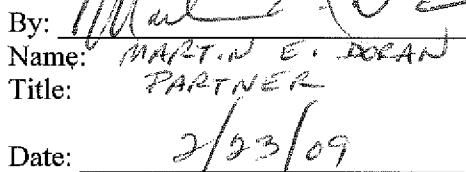 By:
Name: MARTIN E. DORAN
Title: PARTNER
Date: 2/23/09